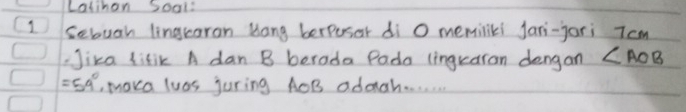 Latihan Soal:
1 Sebuah lingkaran yang berpusat di O memiliki jari-jari 7cm
. Jika titik A dan B berada Pada lingkaran dengan <AOB
=54°, maka luas juring AOB adalah......